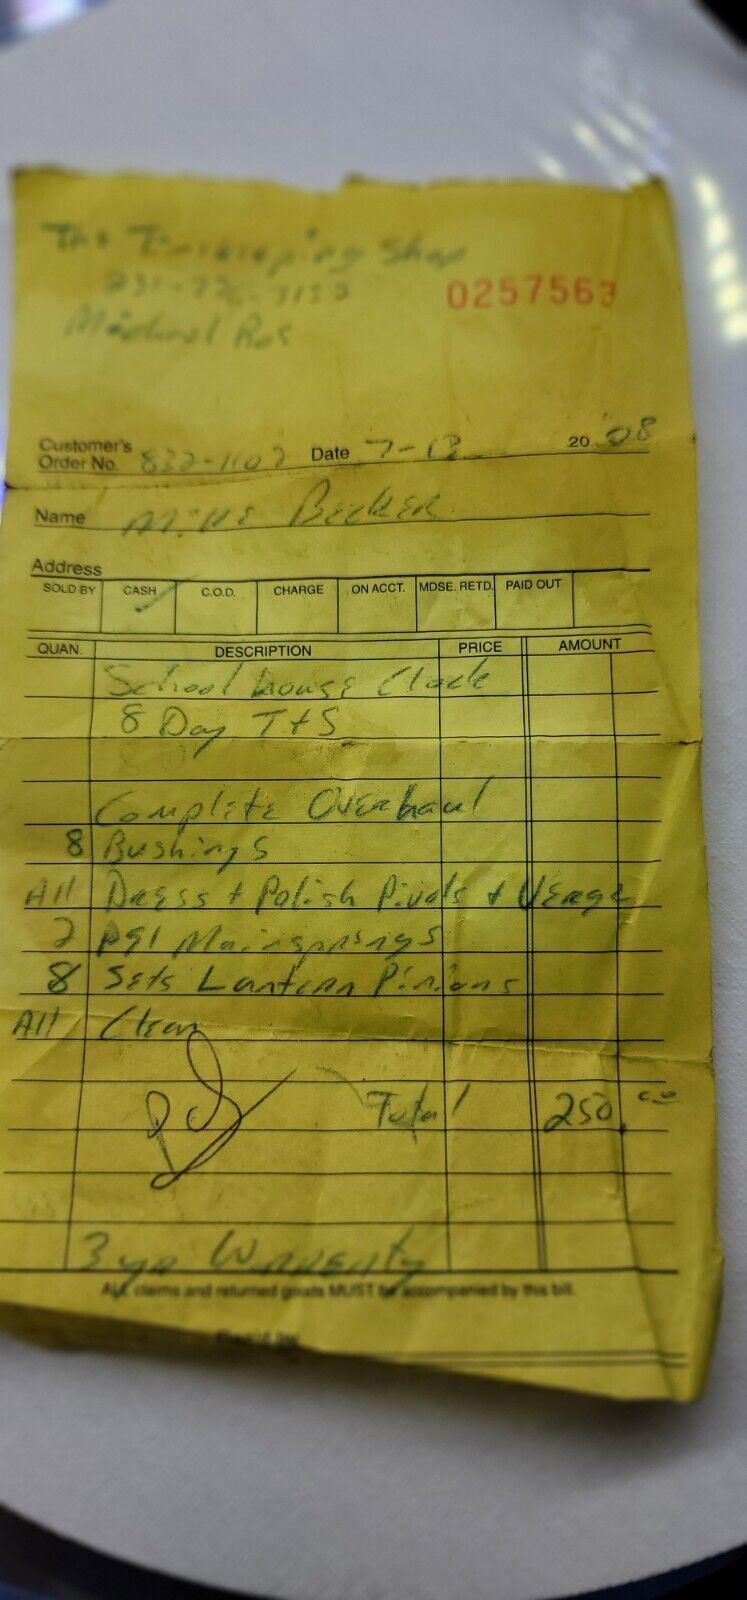 The Timekeeping Shop
0257563
Michael Ros
Customer's Order No. 832-1107 Date 7-12 20 08
Name Mike Becker
Address
SOLD BY CASH C.O.D. CHARGE ON ACCT. MDSE. RETD. PAID OUT
QUAN. DESCRIPTION PRICE AMOUNT
School house Clock
8 Day T+S
Complete Overhaul
8 Bushings
All Dress + Polish Pivots + Verge
2 Mainsprings
8 Sets Lantern Pinions
All Clean
Total 250.00
3 yr Warrenty
ALL claims and returned goods MUST be accompanied by this bill.